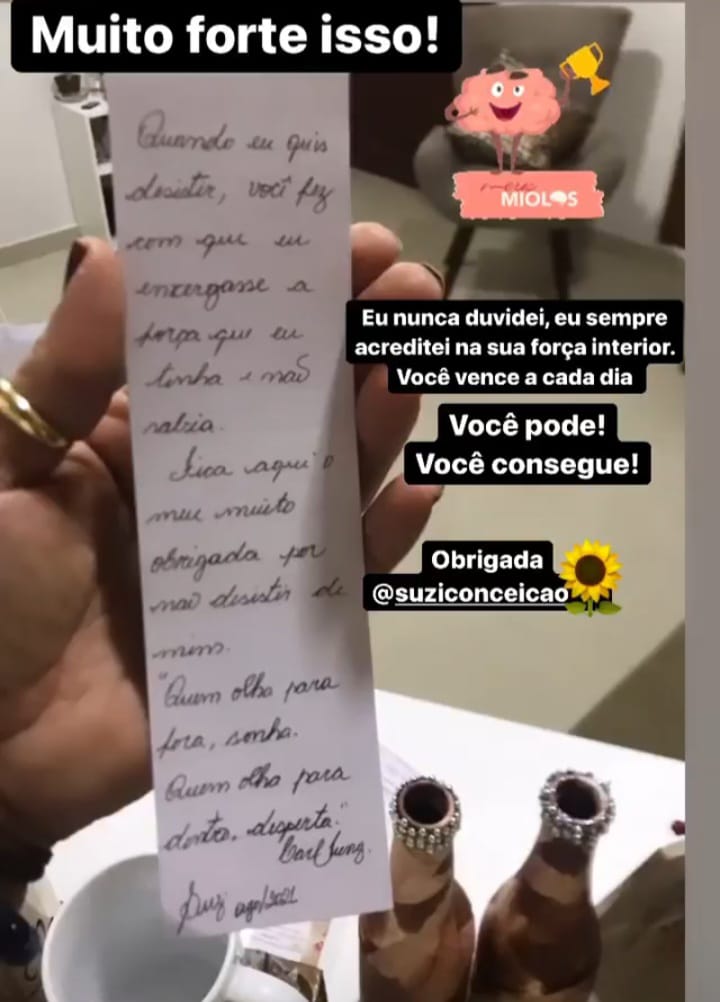 Muito forte isso!
Quando eu quis
desistir, você fez
com que eu
enxergasse a
força que eu
tinha e não
sabia.
Fica aqui o
meu muito
obrigada por
não desistir de
mim.
"Quem olha para
fora, sonha.
Quem olha para
dentro, desperta."
Carl Jung.
Suzi ago/2021
meus
MIOLOS
Eu nunca duvidei, eu sempre
acreditei na sua força interior.
Você vence a cada dia
Você pode!
Você consegue!
Obrigada
@suziconceicao